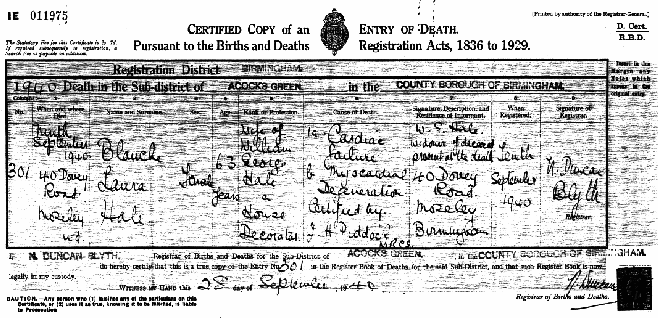 IE 011975
CERTIFIED COPY of an ENTRY OF DEATH.
Pursuant to the Births and Deaths Registration Acts, 1836 to 1929.
[Printed by authority of the Registrar General.]
D. Cert.
R.B.D.
The Statutory Fee for this Certificate is
Registration District BIRMINGHAM.
1940 Death in the Sub-district of ACOCKS GREEN. in the COUNTY BOROUGH OF BIRMINGHAM.
No. When and where Died Name and Surname Sex Age Cause of Death Signature, Description, and Residence of Informant When Registered Signature of Registrar
301
Ninth September 1940 40 Dovey Road Moseley
Blanche Laura Hale
Female
63 years
Wife of William George Hale a House Decorator
Ia Cardiac Failure b Myocardial Degeneration Certified by
W. G. Hale widower of deceased present at the death 40 Dovey Road Moseley Birmingham
Tenth September 1940
N. Duncan Blyth Registrar
I, N. DUNCAN BLYTH, Registrar of Births and Deaths for the Sub-District of ACOCKS GREEN. in the COUNTY BOROUGH OF BIRMINGHAM.
do hereby certify that this is a true copy of the Entry No. 301 in the Register Book of Deaths for the said Sub-District, and that such Register Book is now
legally in my custody.
WITNESS MY HAND this 28 day of September, 1940
Registrar of Births and Deaths.
CAUTION.—Any person who (1) falsifies any of the particulars on this
Certificate, or (2) uses it as true, knowing it to be falsified, is liable
to Prosecution.